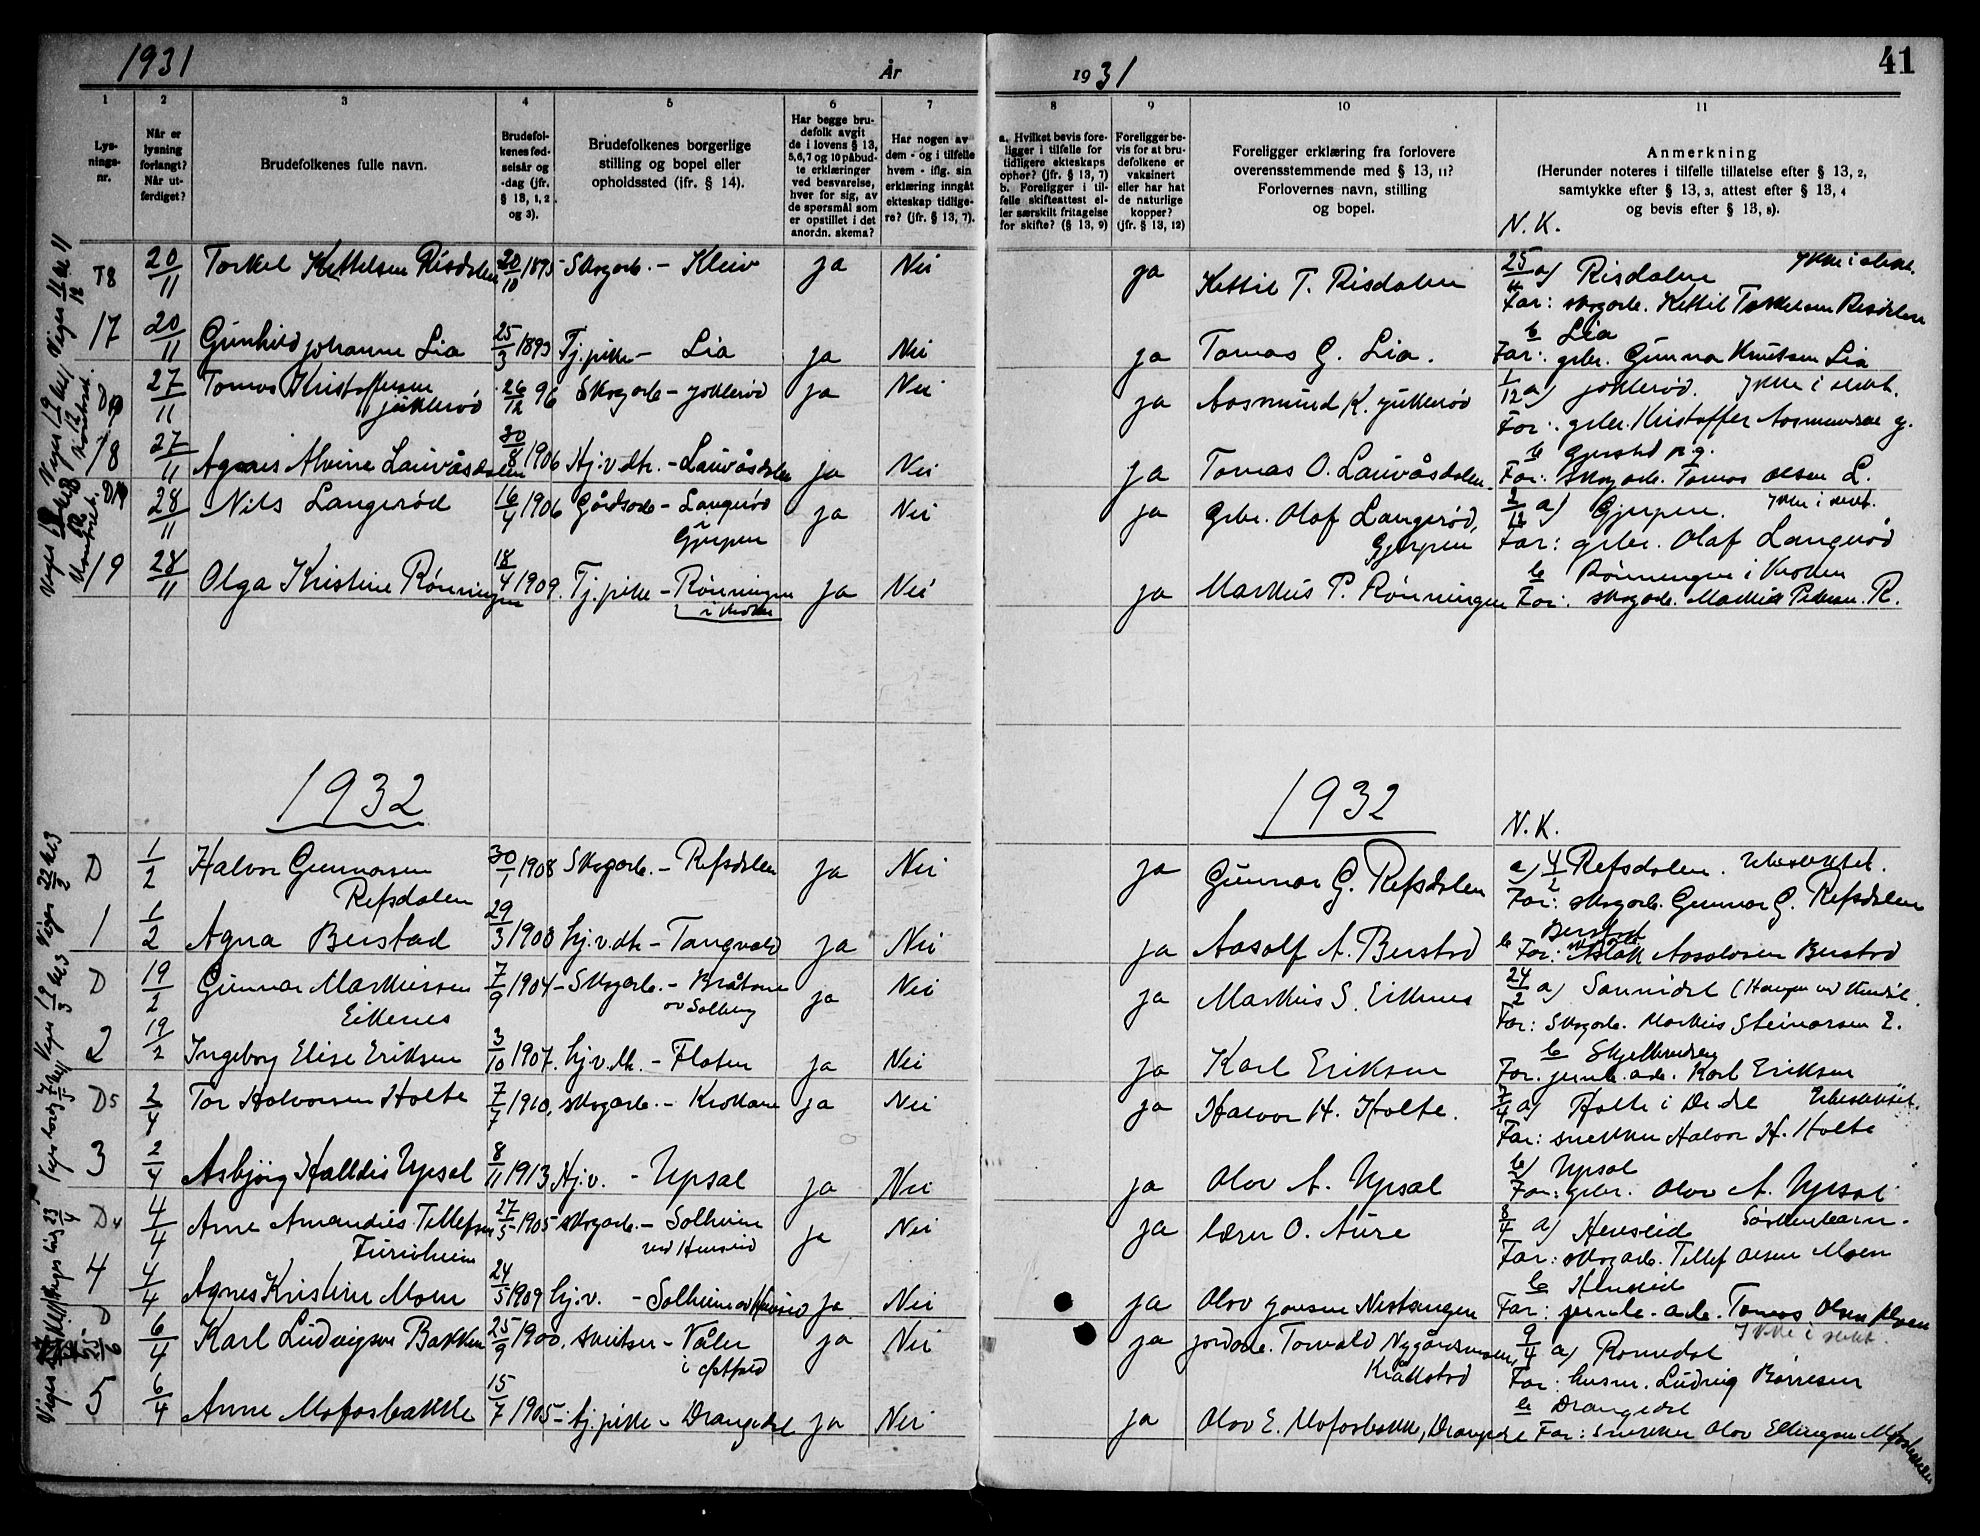 1931 År 1931 41
1 2 3 4 5 6 7 8 9 10 11
Lysnings-nr.
Når er lysning forlangt? Når utferdiget?
Brudefolkenes fulle navn.
Brudefolkenes fødselsår og -dag (jfr. § 13, 1, 2 og 3).
Brudefolkenes borgerlige stilling og bopel eller opholdssted (ifr. § 14).
Har begge brudefolk avgit de i lovens § 13, 5, 6, 7 og 10 påbudte erklæringer ved besvarelse, hver for sig, av de spørsmål som er opstillet i det anordn. skema?
Har nogen av dem - og i tilfelle hvem - iflg. sin erklæring inngått ekteskap tidligere? (jfr. § 13, 7).
a. Hvilket bevis foreligger i tilfelle for tidligere ekteskaps ophør? (jfr. § 13, 7)
b. Foreligger i tilfelle skifteattest eller særskilt fritagelse for skifte? (§ 13, 9)
Foreligger bevis for at brudefolkene er vaksinert eller har hat de naturlige kopper? (jfr. § 13, 12)
Foreligger erklæring fra forlovere overensstemmende med § 13, 11? Forlovernes navn, stilling og bopel.
Anmerkning
(Herunder noteres i tilfelle tillatelse efter § 13, 2, samtykke efter § 13, 3, attest efter § 13, 4 og bevis efter § 13, 8).
N.K.
20/11 Torkel Kettelsen Risdalen 20/10 1895 - Skogarb. - Kleiv ja Nei ja Kettil T. Risdalen 25/11 a) Risdalen Ikke i slekt.
Far: skogarb. Kettil Torkelsen Risdalen
17 20/11 Gunhild Johanne Lia 25/3 1893 Tj.pike - Lia ja Nei ja Tomas G. Lia. b Lia
Far: grbr. Gunnar Knutsen Lia
27/11 Tomas Kristoffersen Juklerød 26/12 96 Skogarb - Joklerød ja Nei ja Aasmund K. Juklerød 1/12 a) Joklerød. Ikke i slekt.
Far: grbr. Kristoffer Aasmundsen J.
18 27/11 Agnes Alvine Lauvåsdalen 30/8 1906 Hj.v.dtr. - Lauvåsdalen ja Nei ja Tomas O. Lauvåsdalen b Gjerstad p.g.
Far: Skogarb. Tomas Olsen L.
28/11 Nils Langerød 16/4 1906 Gårdsarb - Langerød Gjerpen ja Nei ja Grbr. Olaf Langerød, Gjerpen 2/12 a) Gjerpen. Ikke i slekt.
Far: grbr. Olaf Langerød
19 28/11 Olga Kristine Rønningen 18/4 1909. Tj.pike - Rønningen i Kroken ja Nei ja Markus P. Rønningen b Rønningen i Kroken
Far: skogarb. Markus Pedersen R.
1932 1932
N.K.
D 1/2 Halvor Gunnarsen Refsdalen 30/1 1908 Skogarb. - Refsdalen ja Nei ja Gunnar G. Refsdalen a) 4/2 Refsdalen. Ubeslektet.
Far: skogarb. Gunnar G. Refsdalen
1 1/2 Agna Berstad 29/3 1908 hj.v.dtr - Tangvald ja Nei ja Aasolf A. Berstad b Berstad
Far: Aslak Aasolvsen Berstad
D 19/2 Gunnar Markussen Eikenes 7/9 1904 - Skogarb. - Bråtane av Solberg ja Nei ja Markus S. Eikenes 24/2 a) Sannidal
Far: Skogarb. Markus Steinarsen E.
2 19/2 Ingeborg Elise Eriksen 3/10 1907. hj.v.dtr. - Floten ja Nei ja Karl Eriksen b
Far. jernb. arb. Karl Eriksen
D5 2/4 Tor Halvorsen Holte 7/7 1910, skogarb. - Krokane ja Nei ja Halvor H. Holte. 7/4 a) Holte i Drdl Ubeslektet.
Far: snekker Halvor H. Holte
3 2/4 Asbjørg Halldis Upsal 8/11 1913 Hj.v. - Upsal ja Nei ja Olav A. Upsal b) Upsal
Far: grbr. Olav A. Upsal
D4 4/4 Arne Amandus Tellefsen Furuheim 27/5 1905 skogarb. - Solheim ved Henseid ja Nei ja lærer O. Aure 8/4 a) Henseid Søskenbarn.
Far: skogarb. Tellef Olsen Moen
4 4/4 Agnes Kristine Moen 24/5 1909 hj.v. - Solheim av Henseid ja Nei ja Olav Jonsen Nestangen b Henseid
Far: jernb. arb. Tomas Olsen Moen
D 6/4 Karl Ludvigsen Bakken 25/9 1900. sveitser - Våler i Østfold ja Nei ja jordarb. Torvald Nygårdsmoen, Kråkstad 9/4 a) Romedal Ikke i slekt.
Far: husm. Ludvig Børresen
5 6/4 Anne Mofosbakke 15/7 1905 - tj.pike - Drangedal ja Nei ja Olav E. Mofosbakke, Drangedal b Drangedal
Far: Snekker Olav Ellingsen Mofosbakken